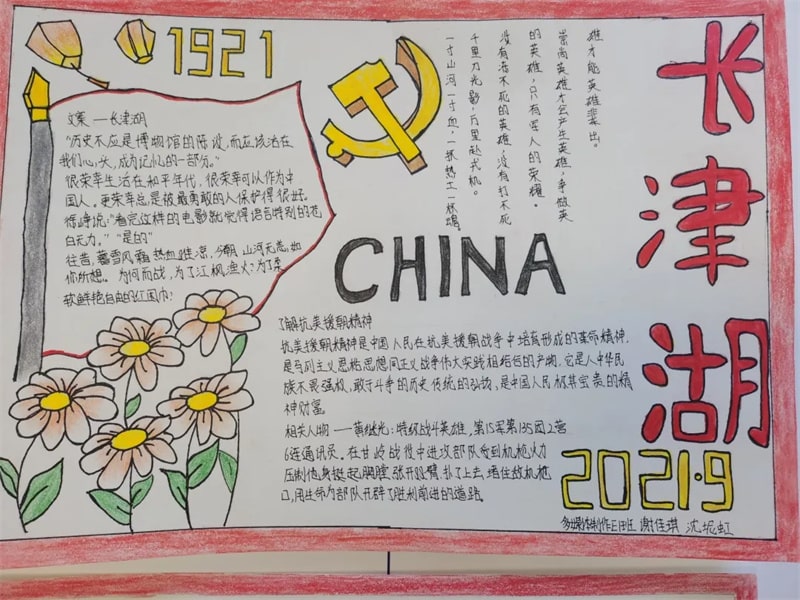 1921
文案 — 长津湖
“历史不应是博物馆的陈设,而应该活在
我们心头,成为记忆的一部分。”
很荣幸生活在和平年代,很荣幸可以作为中
国人。更荣幸总是被最勇敢的人保护得很好。
徐峥说:“看完这样的电影就觉得语言特别的苍
白无力。”“是的”
往昔,霜雪风霜热血难凉,今朝山河无恙,如
你所想。为何而战,为了江枫渔火?为了柔
软鲜艳自由的红围巾?
雄才能英雄辈出。
崇尚英雄才会产生英雄,争做英
的英雄,只有军人的荣耀。
没有活不死的英雄,没有打不死
千里刀光影,万里赴戎机。
一寸山河一寸血,一抔热土一抔魂
长津湖
CHINA
了解抗美援朝精神
抗美援朝精神是中国人民在抗美援朝战争中培育形成的革命精神,
是马列主义思想同正义战争伟大实践相结合的产物。它是人中华民
族不畏强权,敢于斗争的历史传统的弘扬,是中国人民极其宝贵的精
神财富
相关人物 — 黄继光:特级战斗英雄,第15军第135团2营
6连通讯员。在甘岭战役中进攻部队受到机枪火力
压制他身挺起胸膛,张开双臂,扑了上去,堵住敌机枪
口,用生命为部队开辟了胜利前进的道路。
2021·9
多媒体制作E1班 谢佳琪 沈妮虹